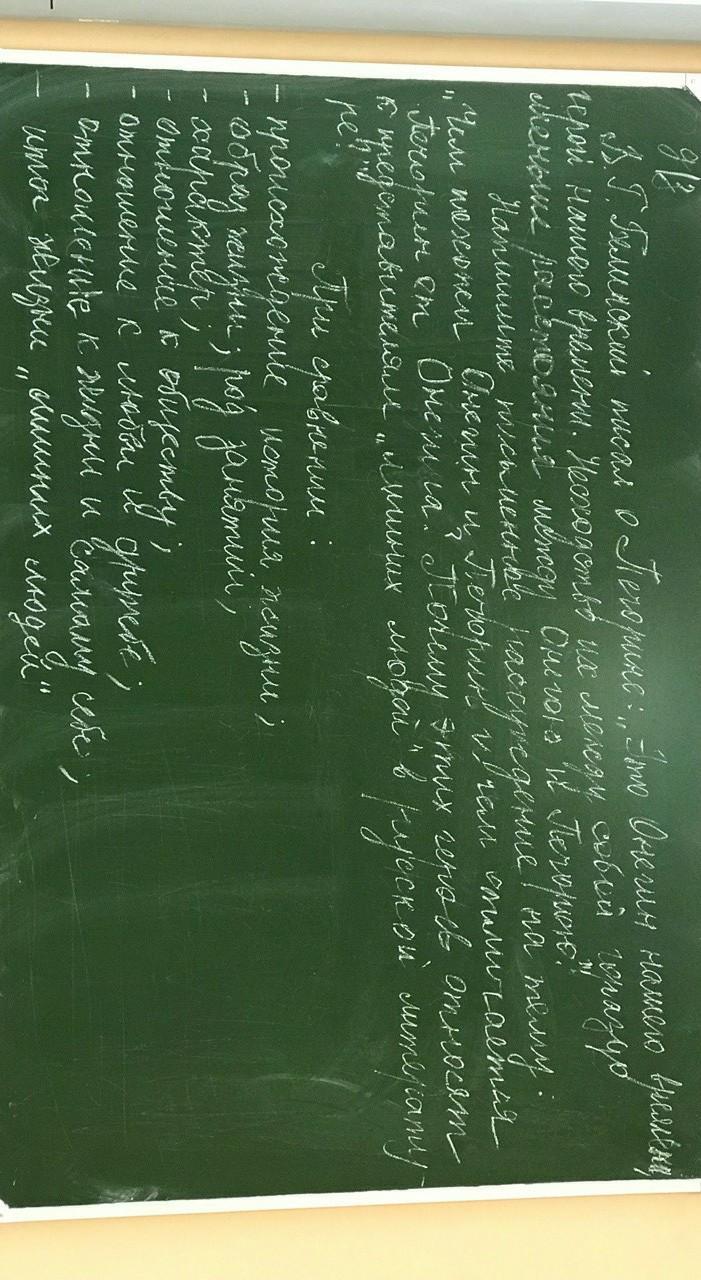 д/з
В. Г. Белинский писал о Печорине: „Это Онегин нашего времени,
герой нашего времени. Несходство их между собой гораздо
меньше расстояния между Онегою и Печорою".
Напишите письменное рассуждение на тему:
"Чем похожи Онегин и Печорин и чем отличается
Печорин от Онегина? Почему этих героев относят
к представителям „лишних людей" в русской литерату
ре?"
При сравнении:
- происхождение, история жизни;
- образ жизни, род занятий;
- характер;
- отношение к обществу;
- отношение к любви и дружбе;
- отношение к жизни и самому себе;
- итог жизни „лишних людей"